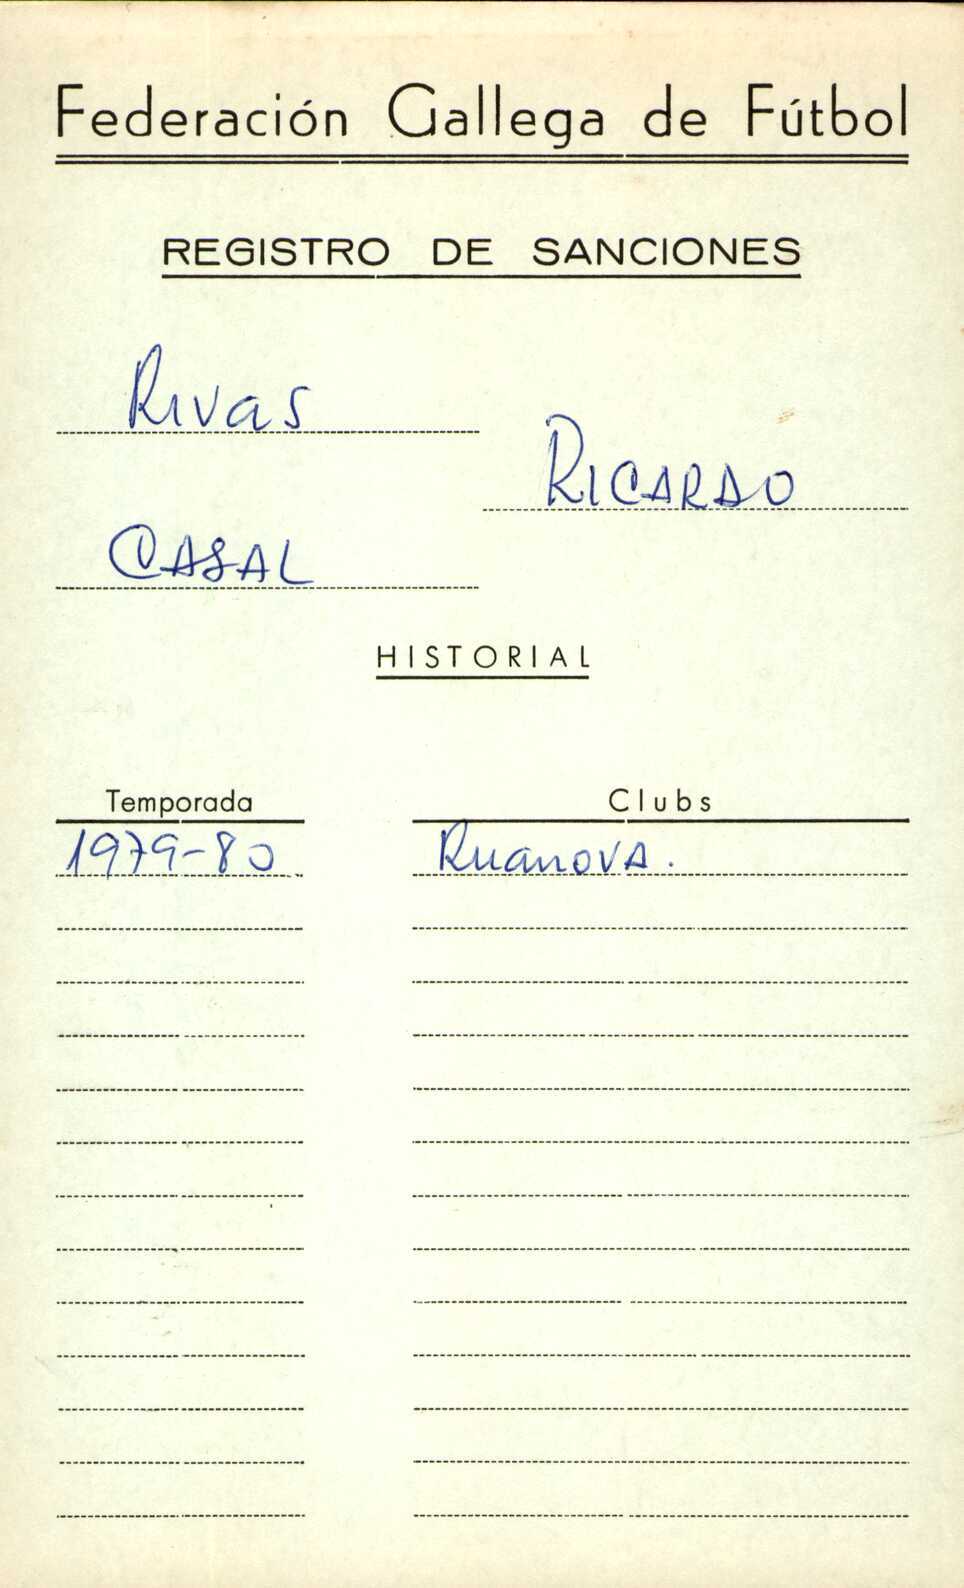 Federación Gallega de Fútbol
REGISTRO DE SANCIONES
Rivas
RICARDO
CASAL
HISTORIAL
Temporada Clubs
1979-80 Ruanova.